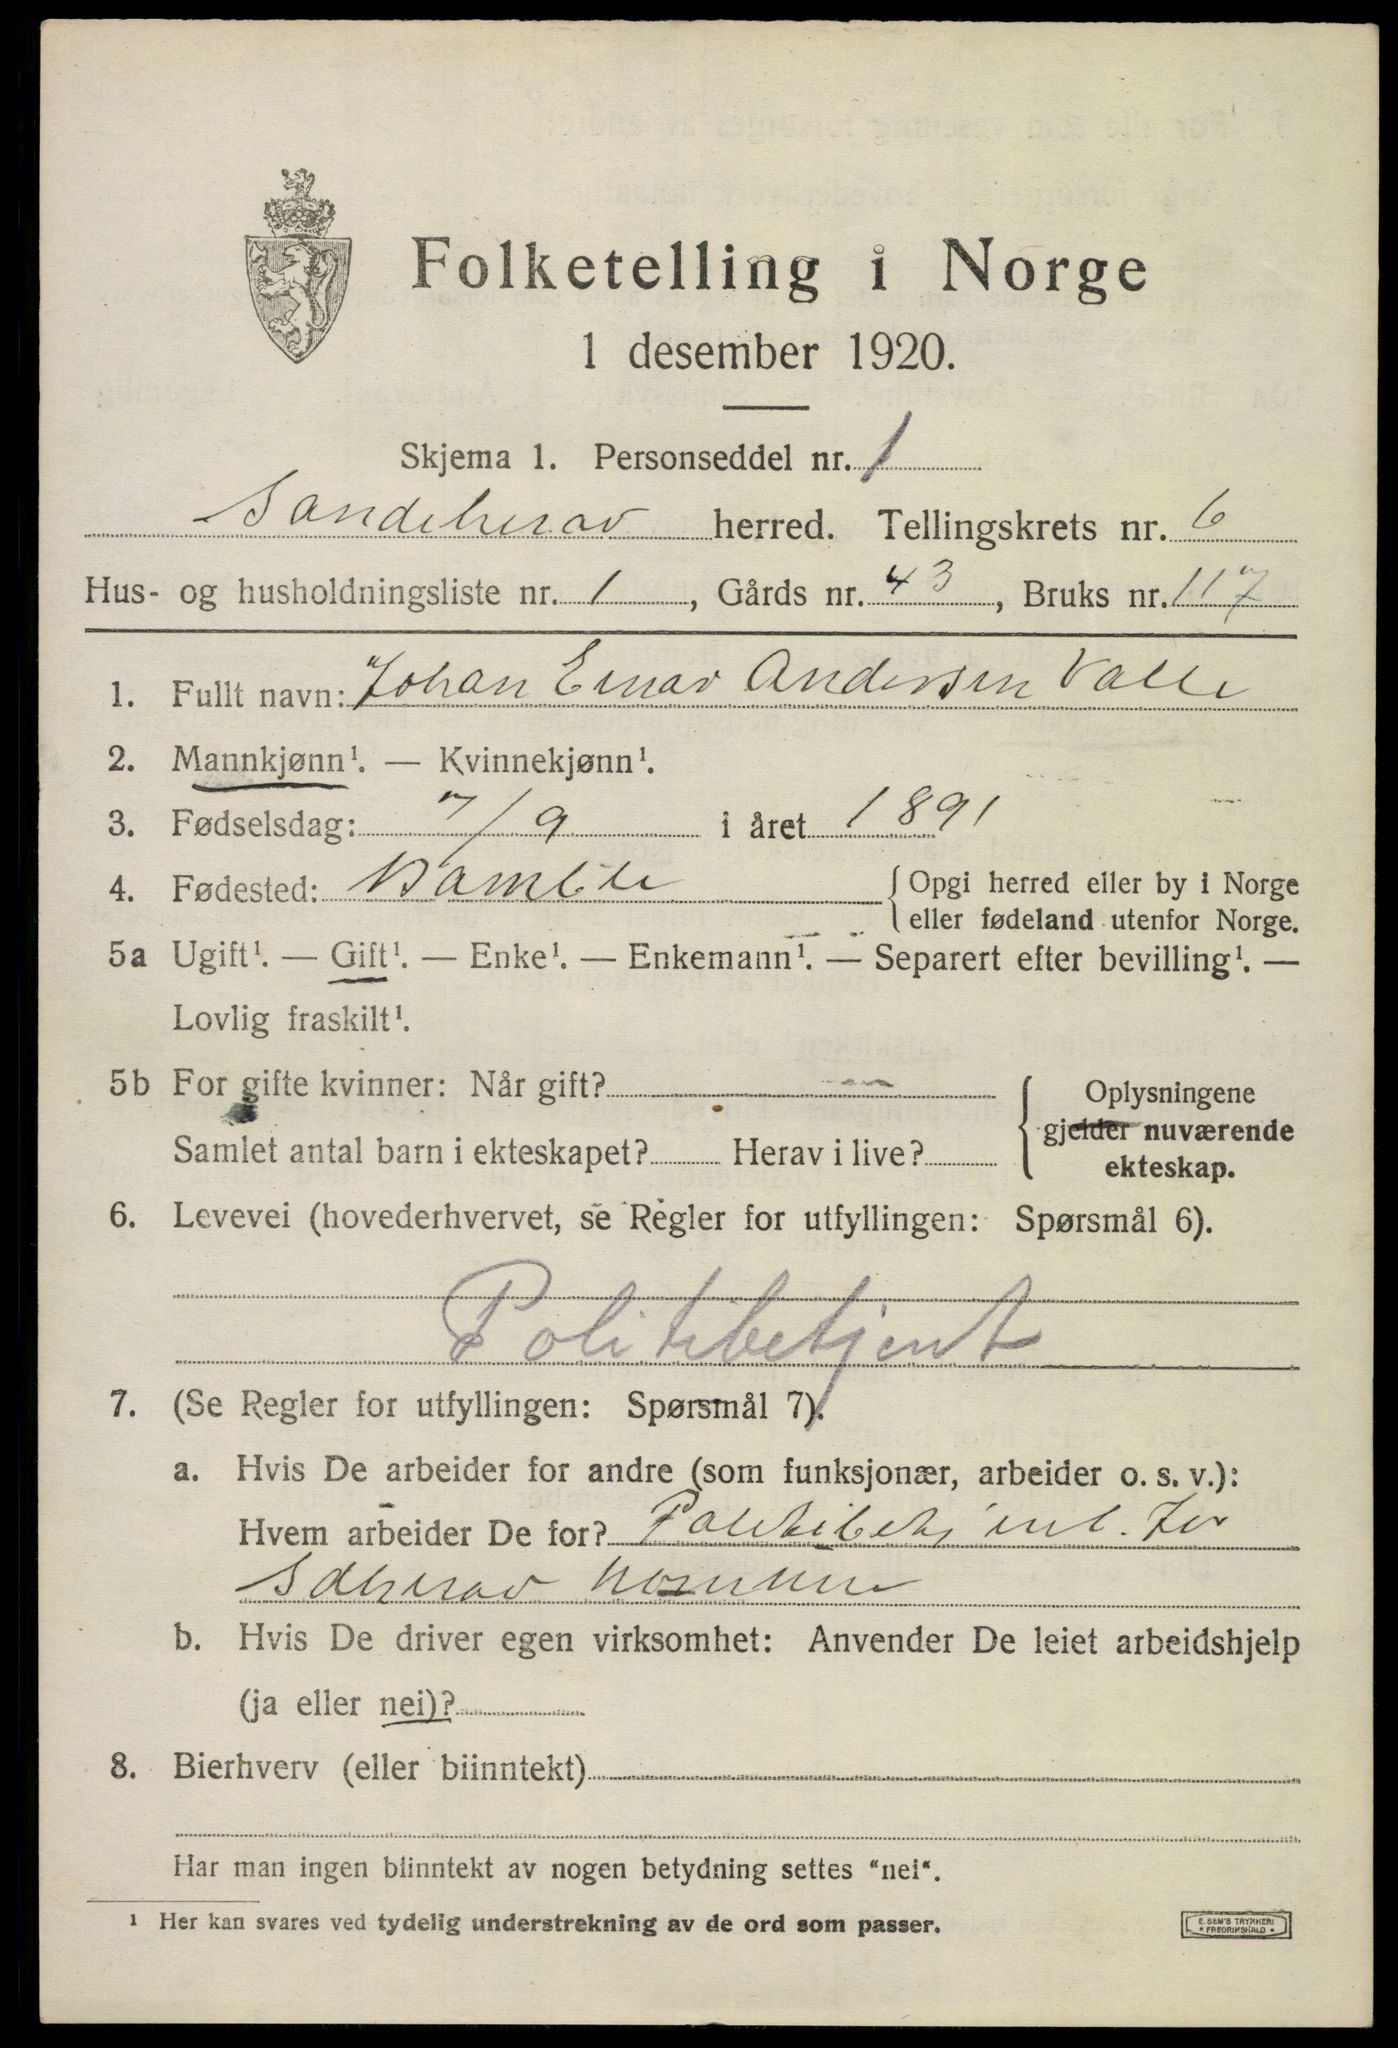 Folketelling i Norge
1 desember 1920.
Skjema 1. Personseddel nr. 1
Sandeherav herred. Tellingskrets nr. 6
Hus- og husholdningsliste nr. 1, Gårds nr. 43, Bruks nr. 117
1. Fullt navn: Johan Einar Andersen Valle
2. Mannkjønn¹. — Kvinnekjønn¹.
3. Fødselsdag: 7/9 i året 1891
4. Fødested: Bamble {Opgi herred eller by i Norge
eller fødeland utenfor Norge.
5a Ugift¹. — Gift¹. — Enke¹. — Enkemann¹. — Separert efter bevilling¹. —
Lovlig fraskilt¹.
5b For gifte kvinner: Når gift? Oplysningene
gjelder nuværende
Samlet antal barn i ekteskapet? Herav i live? ekteskap.
6. Levevei (hovederhvervet, se Regler for utfyllingen: Spørsmål 6).
Politibetjent
7. (Se Regler for utfyllingen: Spørsmål 7).
a. Hvis De arbeider for andre (som funksjonær, arbeider o. s. v.):
Hvem arbeider De for? Politibetjent. for
Sdherav komune
b. Hvis De driver egen virksomhet: Anvender De leiet arbeidshjelp
(ja eller nei)?
8. Bierhverv (eller biinntekt)
Har man ingen biinntekt av nogen betydning settes "nei".
¹ Her kan svares ved tydelig understrekning av de ord som passer.
E. SEM'S TRYKKERI
* FREDRIKSHALD *